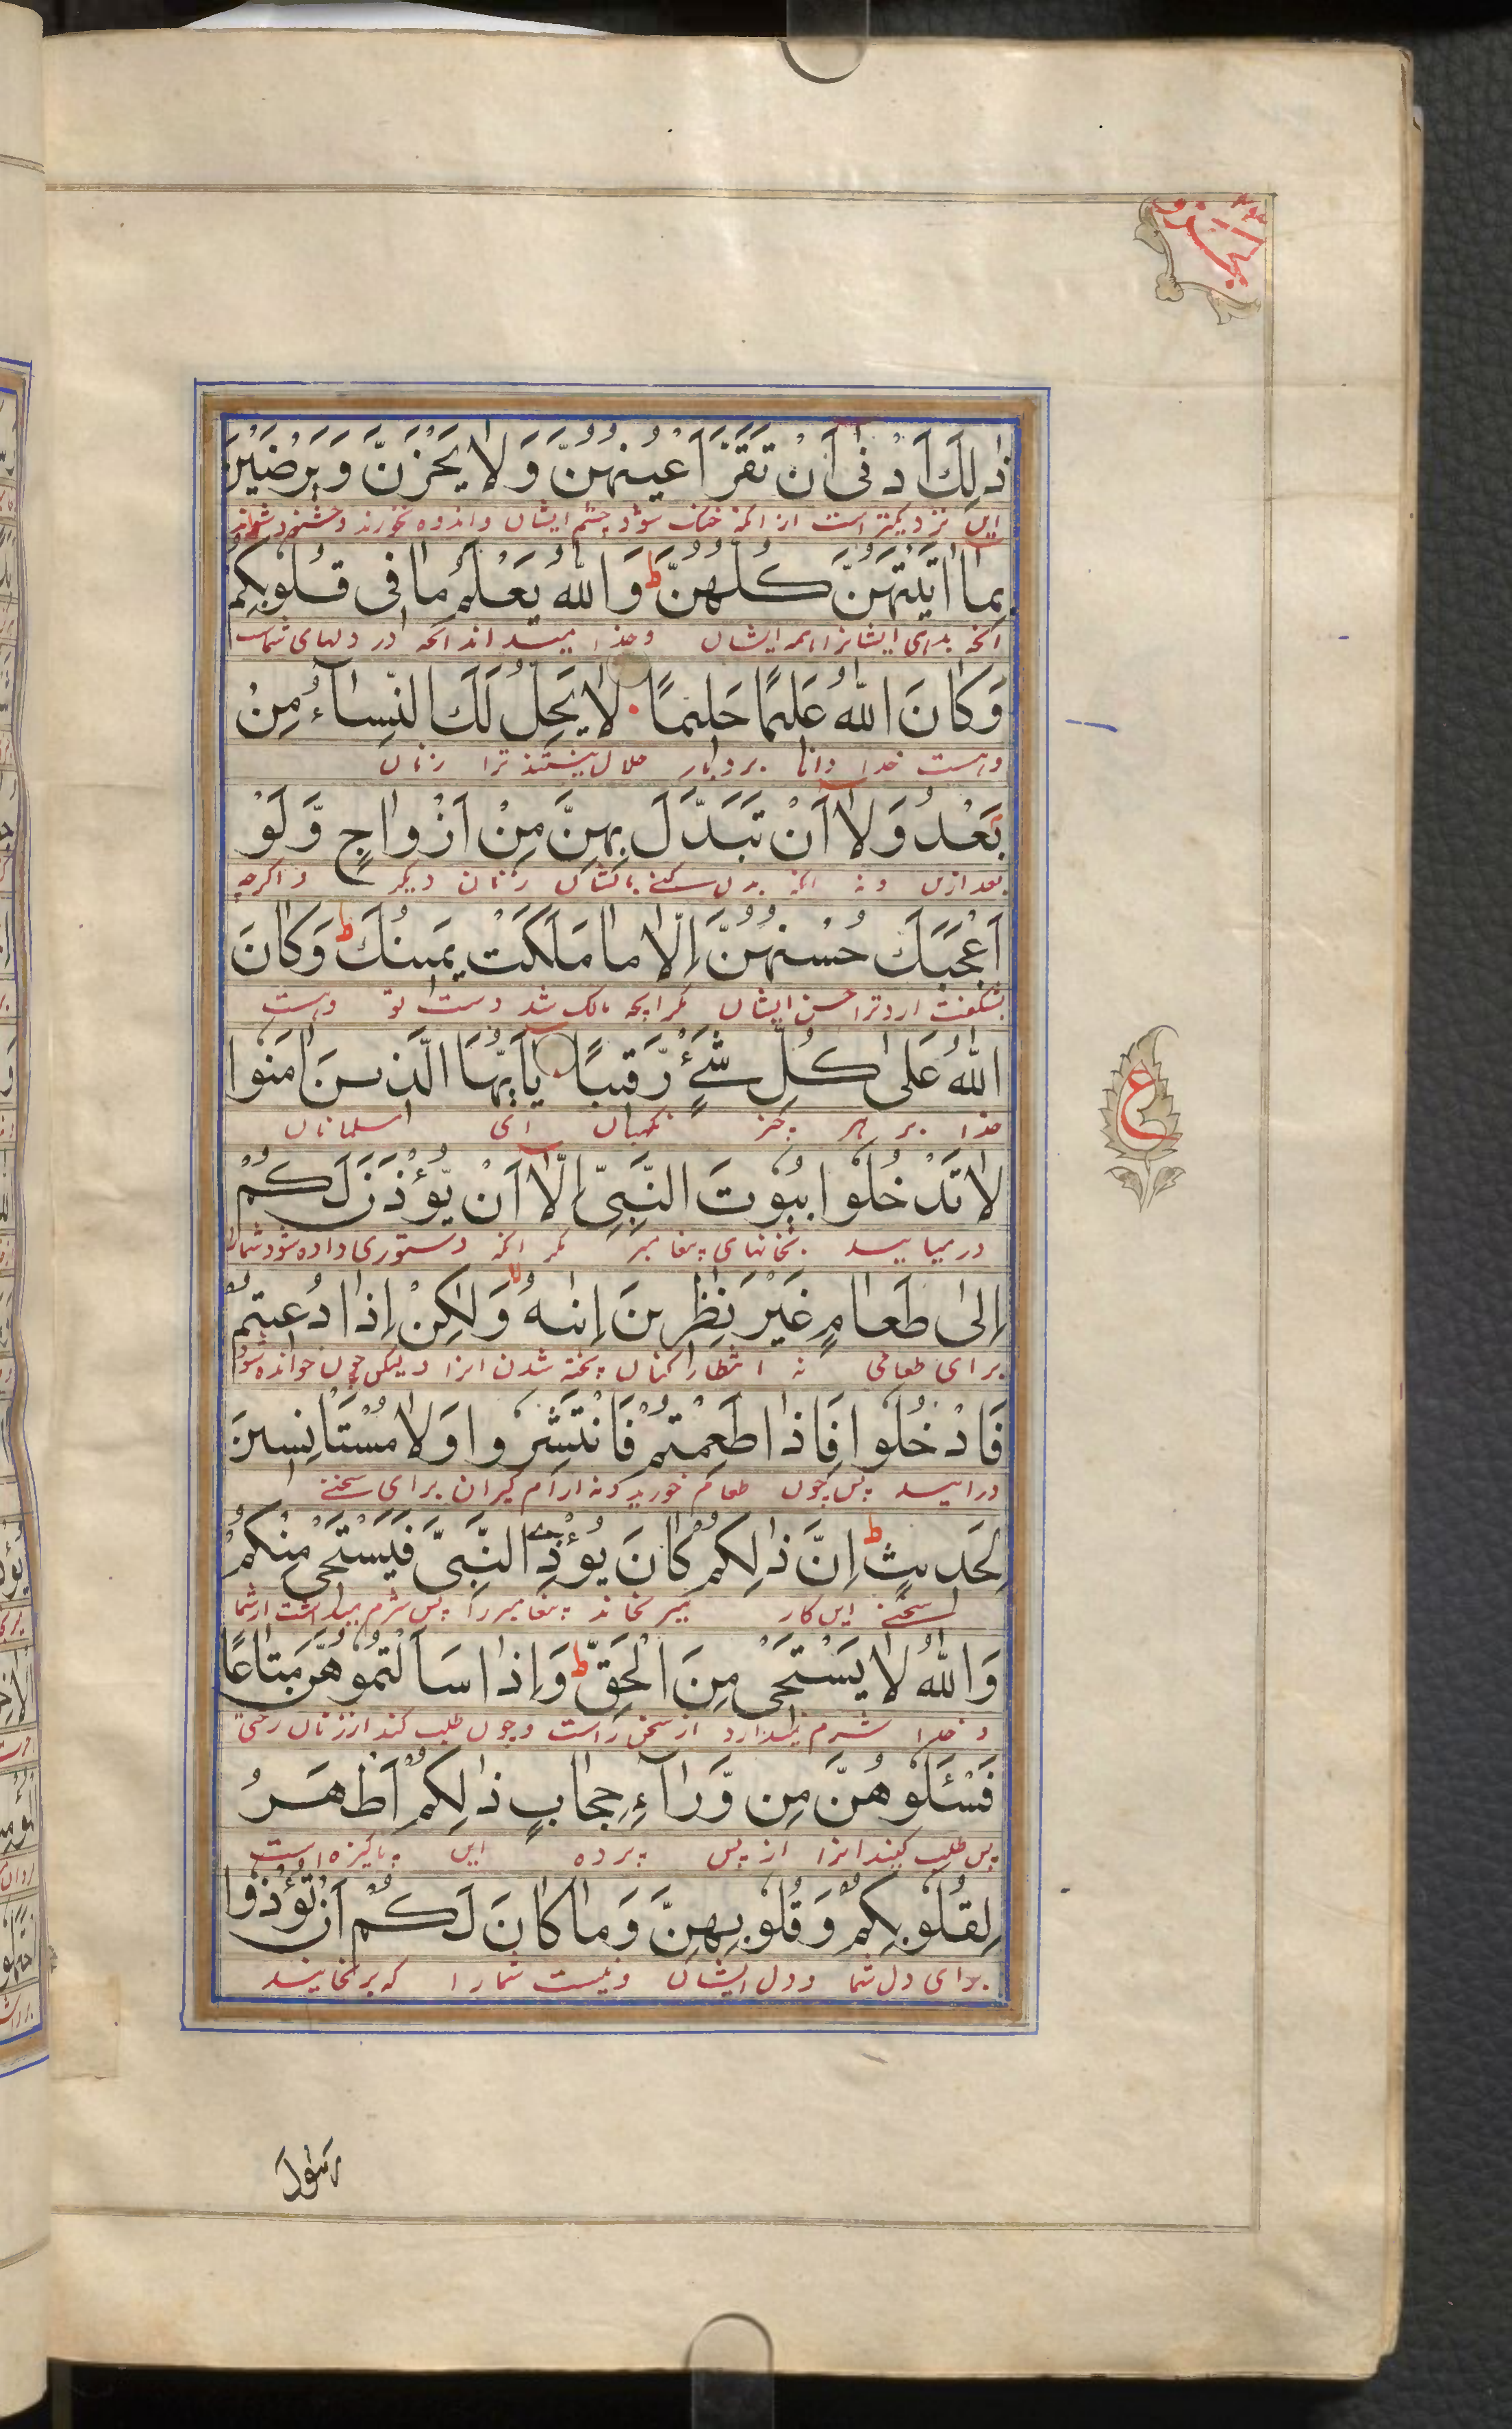 ذٰلِكَ اَدْنٰى اَنْ تَقَرَّ اَعْيُنُهُنَّ وَلَا يَحْزَنَّ وَيَرْضَيْنَ
این نزدیکتر است از آنکه خنک شود چشم ایشان و اندوه نخورند و خشنود شوند
بِمَا اٰتَيْتَهُنَّ كُلُّهُنَّ ط وَاللّٰهُ يَعْلَمُ مَا فِى قُلُوْبِكُمْ
انچه بدهی ایشانرا همه ایشان و خدا میداند انچه در دلهای شماست
وَكَانَ اللّٰهُ عَلِيْمًا حَلِيْمًا لَا يَحِلُّ لَكَ النِّسَآءُ مِنْ
وهست خدا دانا بردبار حلال نیستند ترا زنان
بَعْدُ وَلَا اَنْ تَبَدَّلَ بِهِنَّ مِنْ اَزْوَاجٍ وَّلَوْ
بعد ازین و نه انکه بدل کنی بایشان زنان دیگر و اگرچه
اَعْجَبَكَ حُسْنُهُنَّ اِلَّا مَا مَلَكَتْ يَمِيْنُكَ ط وَكَانَ
بشگفت ارد ترا حسن ایشان مگر انچه مالک شد دست تو وهست
اللّٰهُ عَلٰى كُلِّ شَىْءٍ رَّقِيْبًا يٰاَيُّهَا الَّذِيْنَ اٰمَنُوا
خدا بر هر چیز نگهبان ای مسلمانان
لَا تَدْخُلُوا بُيُوْتَ النَّبِىِّ اِلَّا اَنْ يُّؤْذَنَ لَكُمْ
در میایید بخانهای پیغامبر مگر انکه دستوری داده شود شمارا
اِلٰى طَعَامٍ غَيْرَ نٰظِرِيْنَ اِنٰهُ لا وَلٰكِنْ اِذَا دُعِيْتُمْ
برای طعامی نه انتظار کنان پخته شدن انرا ولیکن چون خوانده شود
فَادْخُلُوا فَاِذَا طَعِمْتُمْ فَانْتَشِرُوا وَلَا مُسْتَاْنِسِيْنَ
درایید پس چون طعام خورید و نه ارام گیران برای سخنی
لِحَدِيْثٍ ط اِنَّ ذٰلِكُمْ كَانَ يُؤْذِى النَّبِىَّ فَيَسْتَحْىٖ مِنْكُمْ
سخنی این کار میرنجاند پیغامبر را پس شرم میداشت از شما
وَاللّٰهُ لَا يَسْتَحْىٖ مِنَ الْحَقِّ ط وَاِذَا سَاَلْتُمُوْهُنَّ مَتَاعًا
و خدا شرم نمیدارد از سخن راست و چون طلب کند از زنان رختی
فَسْئَلُوْهُنَّ مِنْ وَّرَآءِ حِجَابٍ ذٰلِكُمْ اَطْهَرُ
پس طلب کنید انرا از پس پرده این پاکیزه است
لِقُلُوْبِكُمْ وَقُلُوْبِهِنَّ وَمَا كَانَ لَكُمْ اَنْ تُؤْذُوا
برای دل شما و دل ایشان و نیست شمارا که برنجانید
ع
رَسُوْلَ